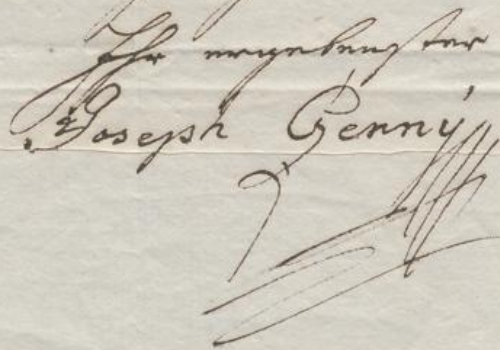 Ihr ergebenster
Joseph Genny